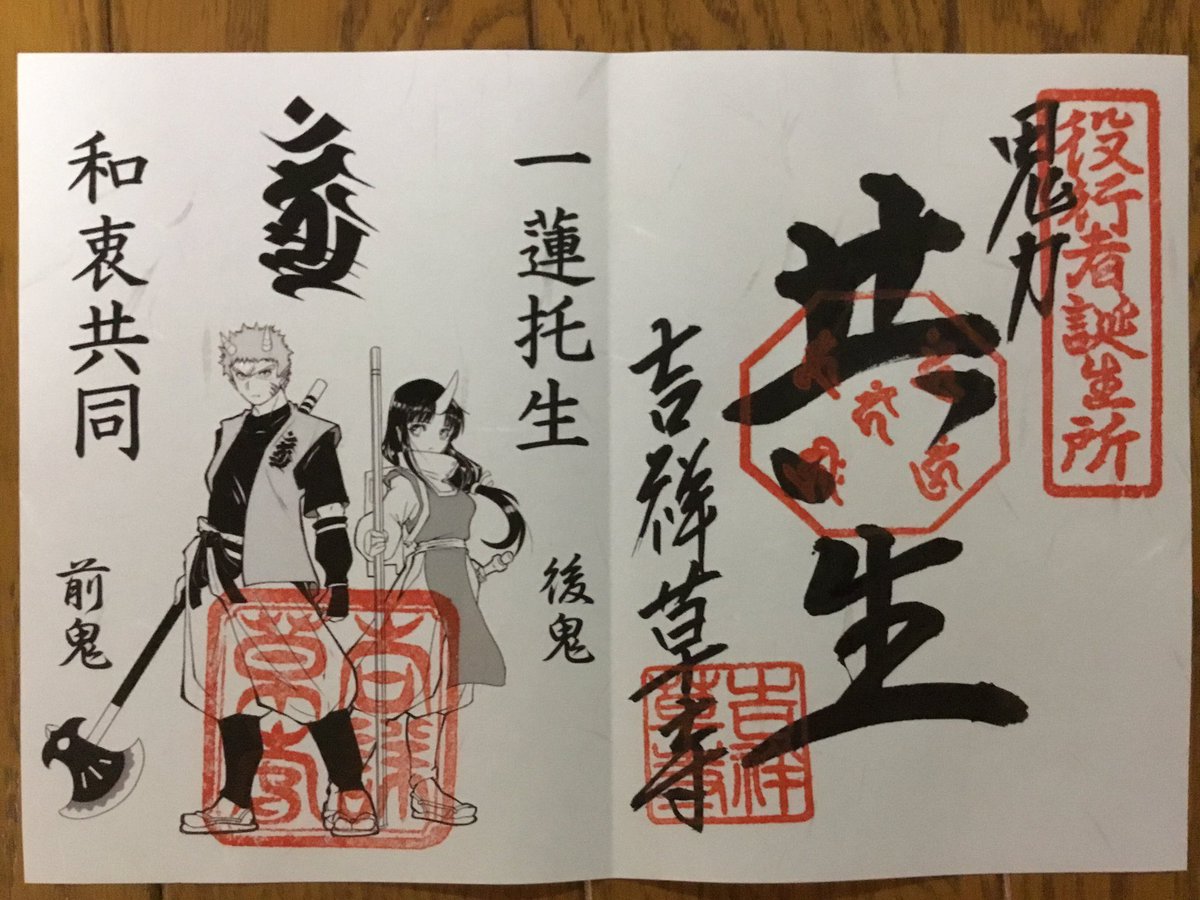 役行者誕生所
鬼力
共生
吉祥草寺
吉祥草寺
一蓮托生
後鬼
和衷共同
前鬼
吉祥草寺